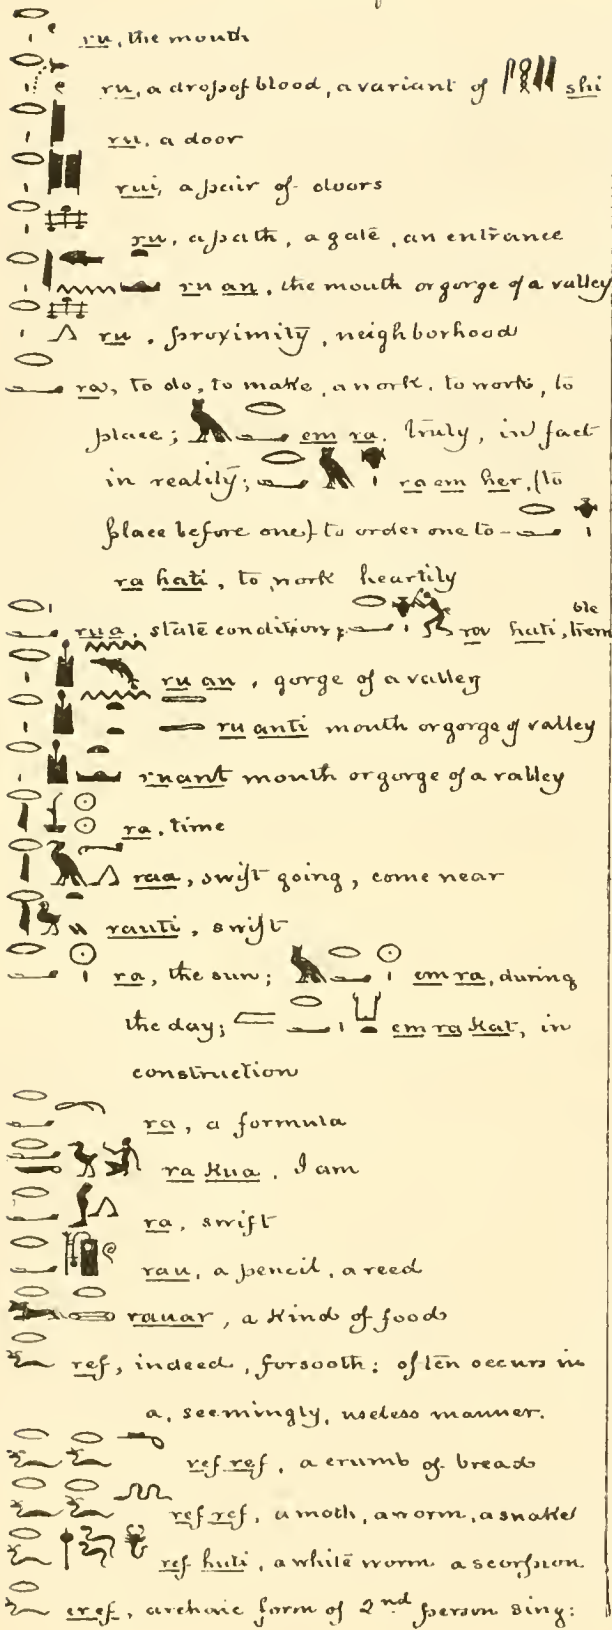 ru, the mouth
ru, a drop of blood, a variant of shi
ru, a door
rui, a pair of doors
ru, a path, a gate, an entrance
ru an, the mouth or gorge of a valley
ru, proximity, neighborhood
ra, to do, to make, a work, to work, to
place; em ra. truly, in fact
in reality; ra em her, (to
place before one) to order one to-
ra hati, to work heartily
rua, state condition; ra hati, trem
ble
ru an, gorge of a valley
ru anti mouth or gorge of valley
ruant mouth or gorge of a valley
ra, time
raa, swift going, come near
rauti, swift
ra, the sun; em ra, during
the day; em ra kat, in
construction
ra, a formula
ra kua, I am
ra, swift
rau, a pencil, a reed
rauar, a kind of food
ref, indeed, forsooth; often occurs in
a, seemingly, useless manner.
ref ref, a crumb of bread
ref ref, a moth, a worm, a snake
ref huti, a white worm a scorpion
eref, archaic form of 2nd person sing: